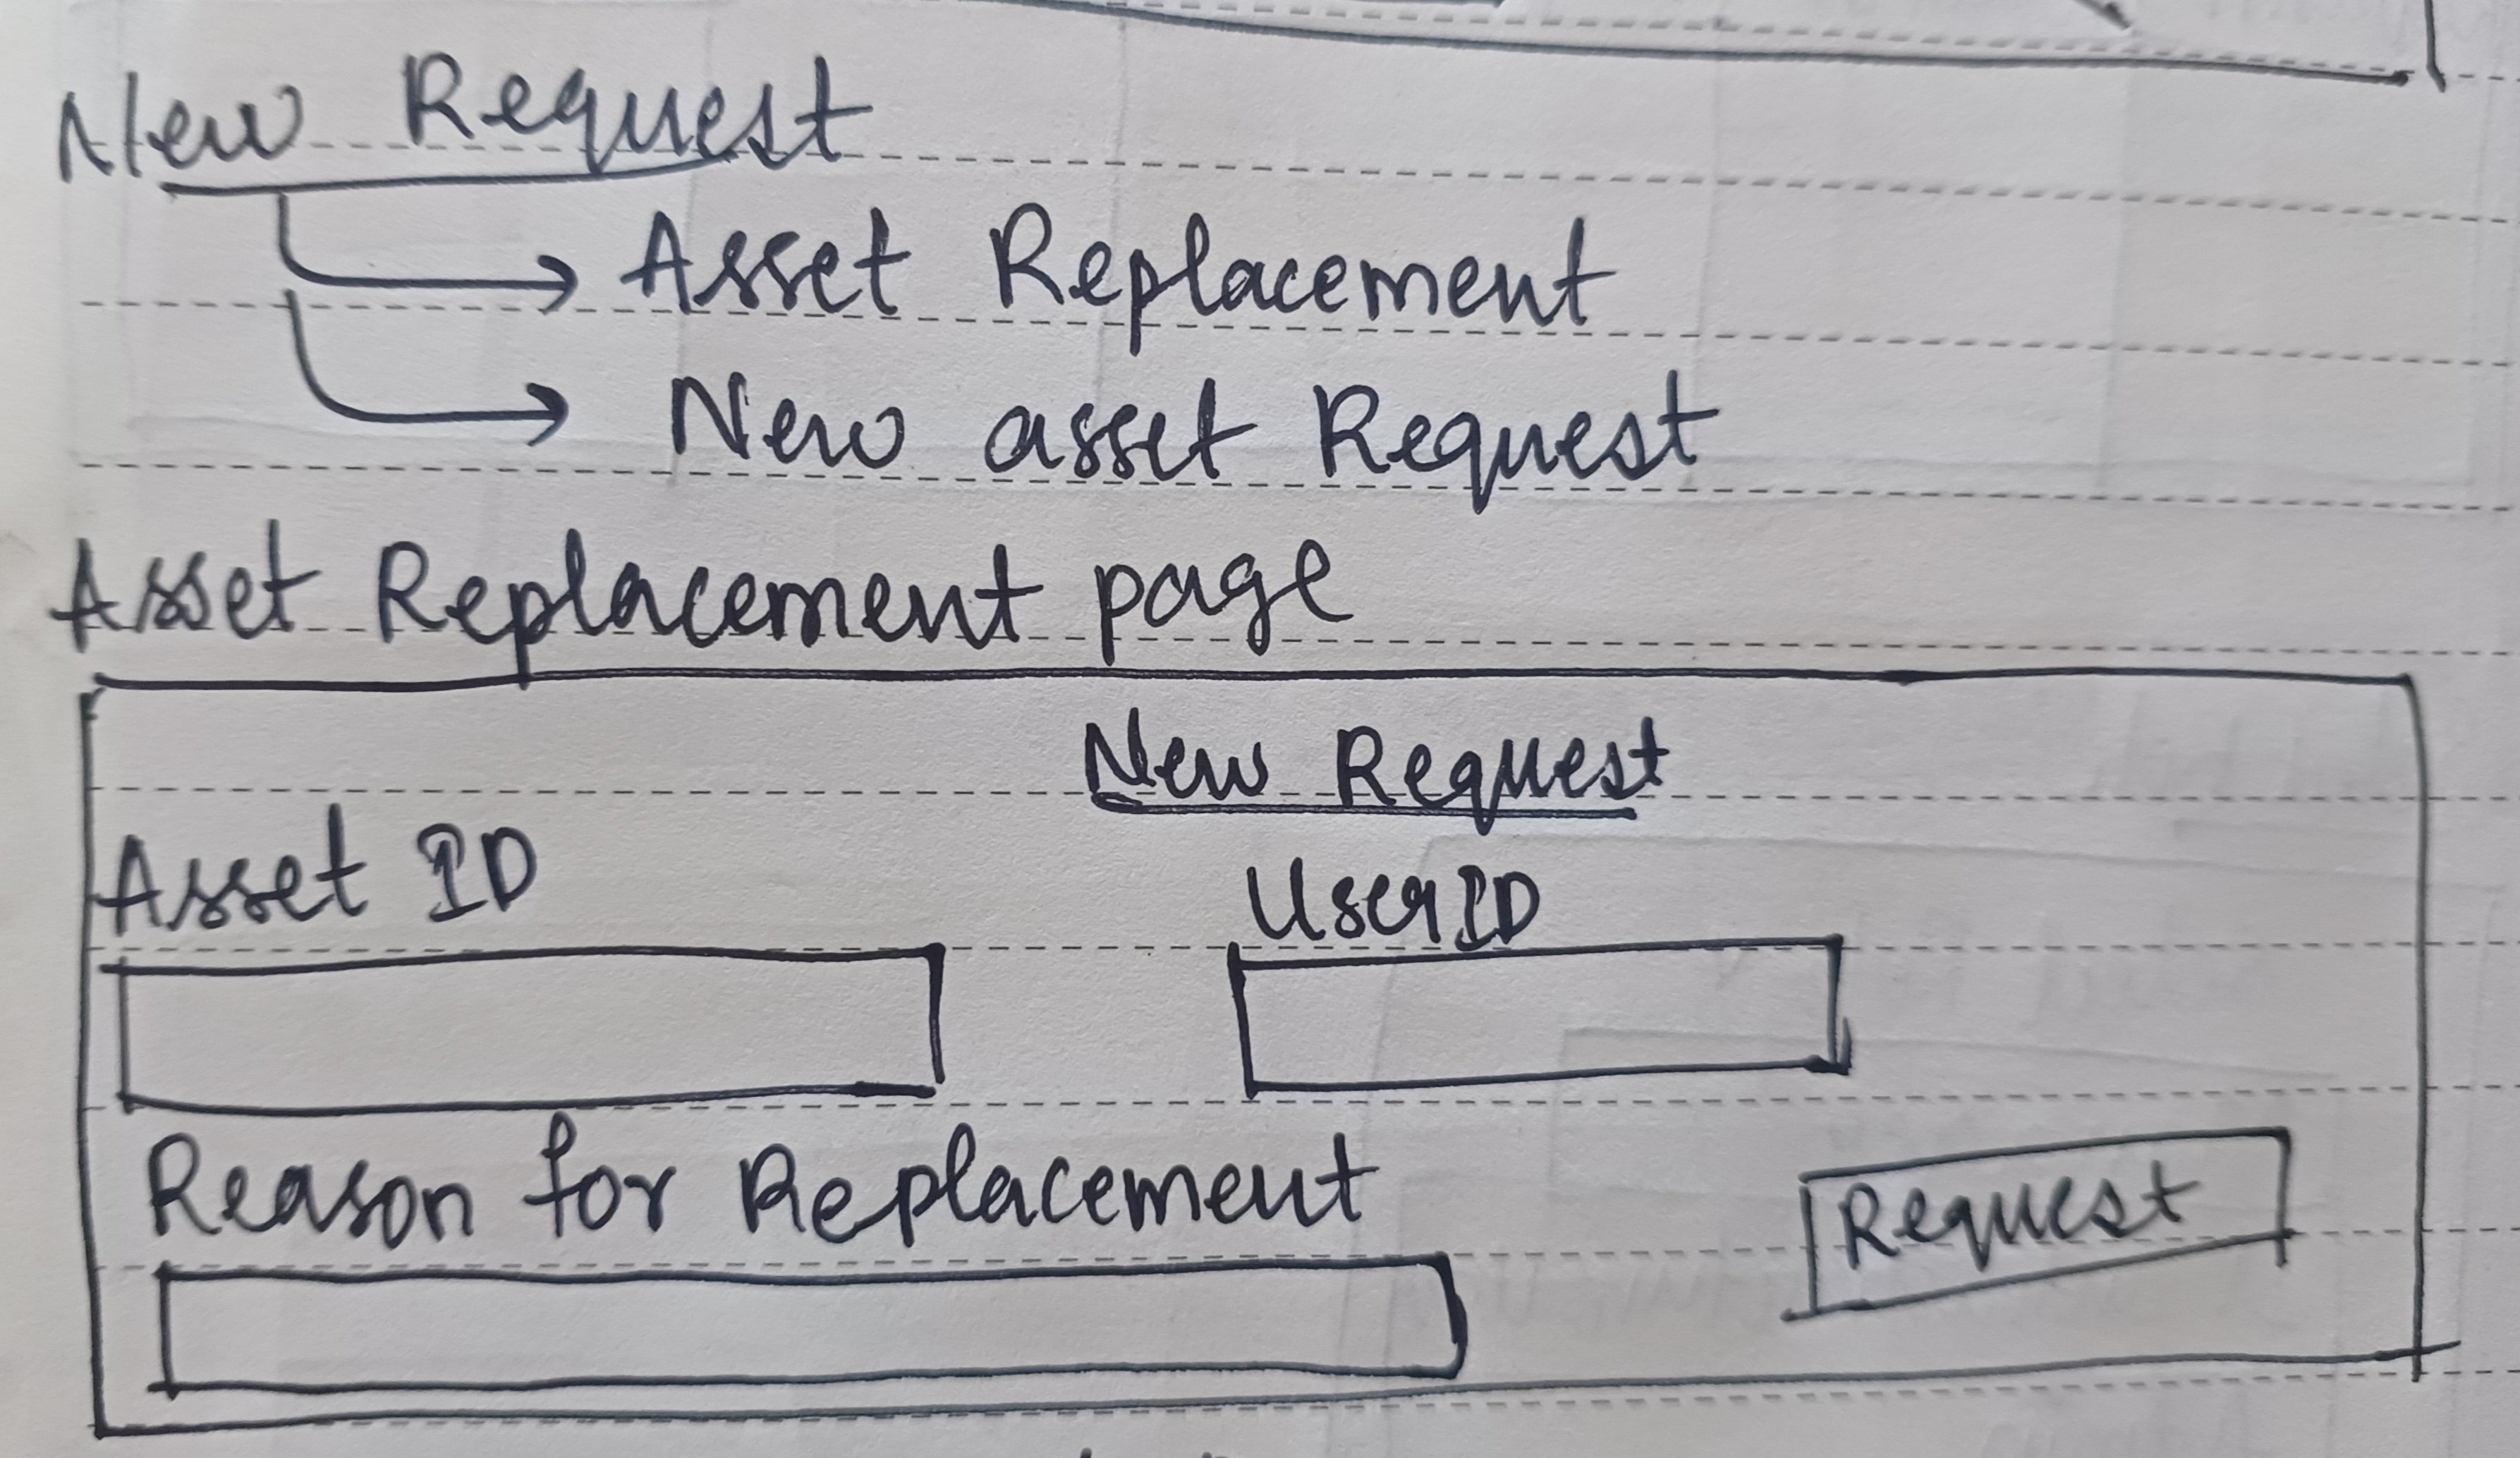 New Request
Asset Replacement
New asset Request
Asset Replacement page
New Request
Asset ID
UserID
Reason for Replacement
Request